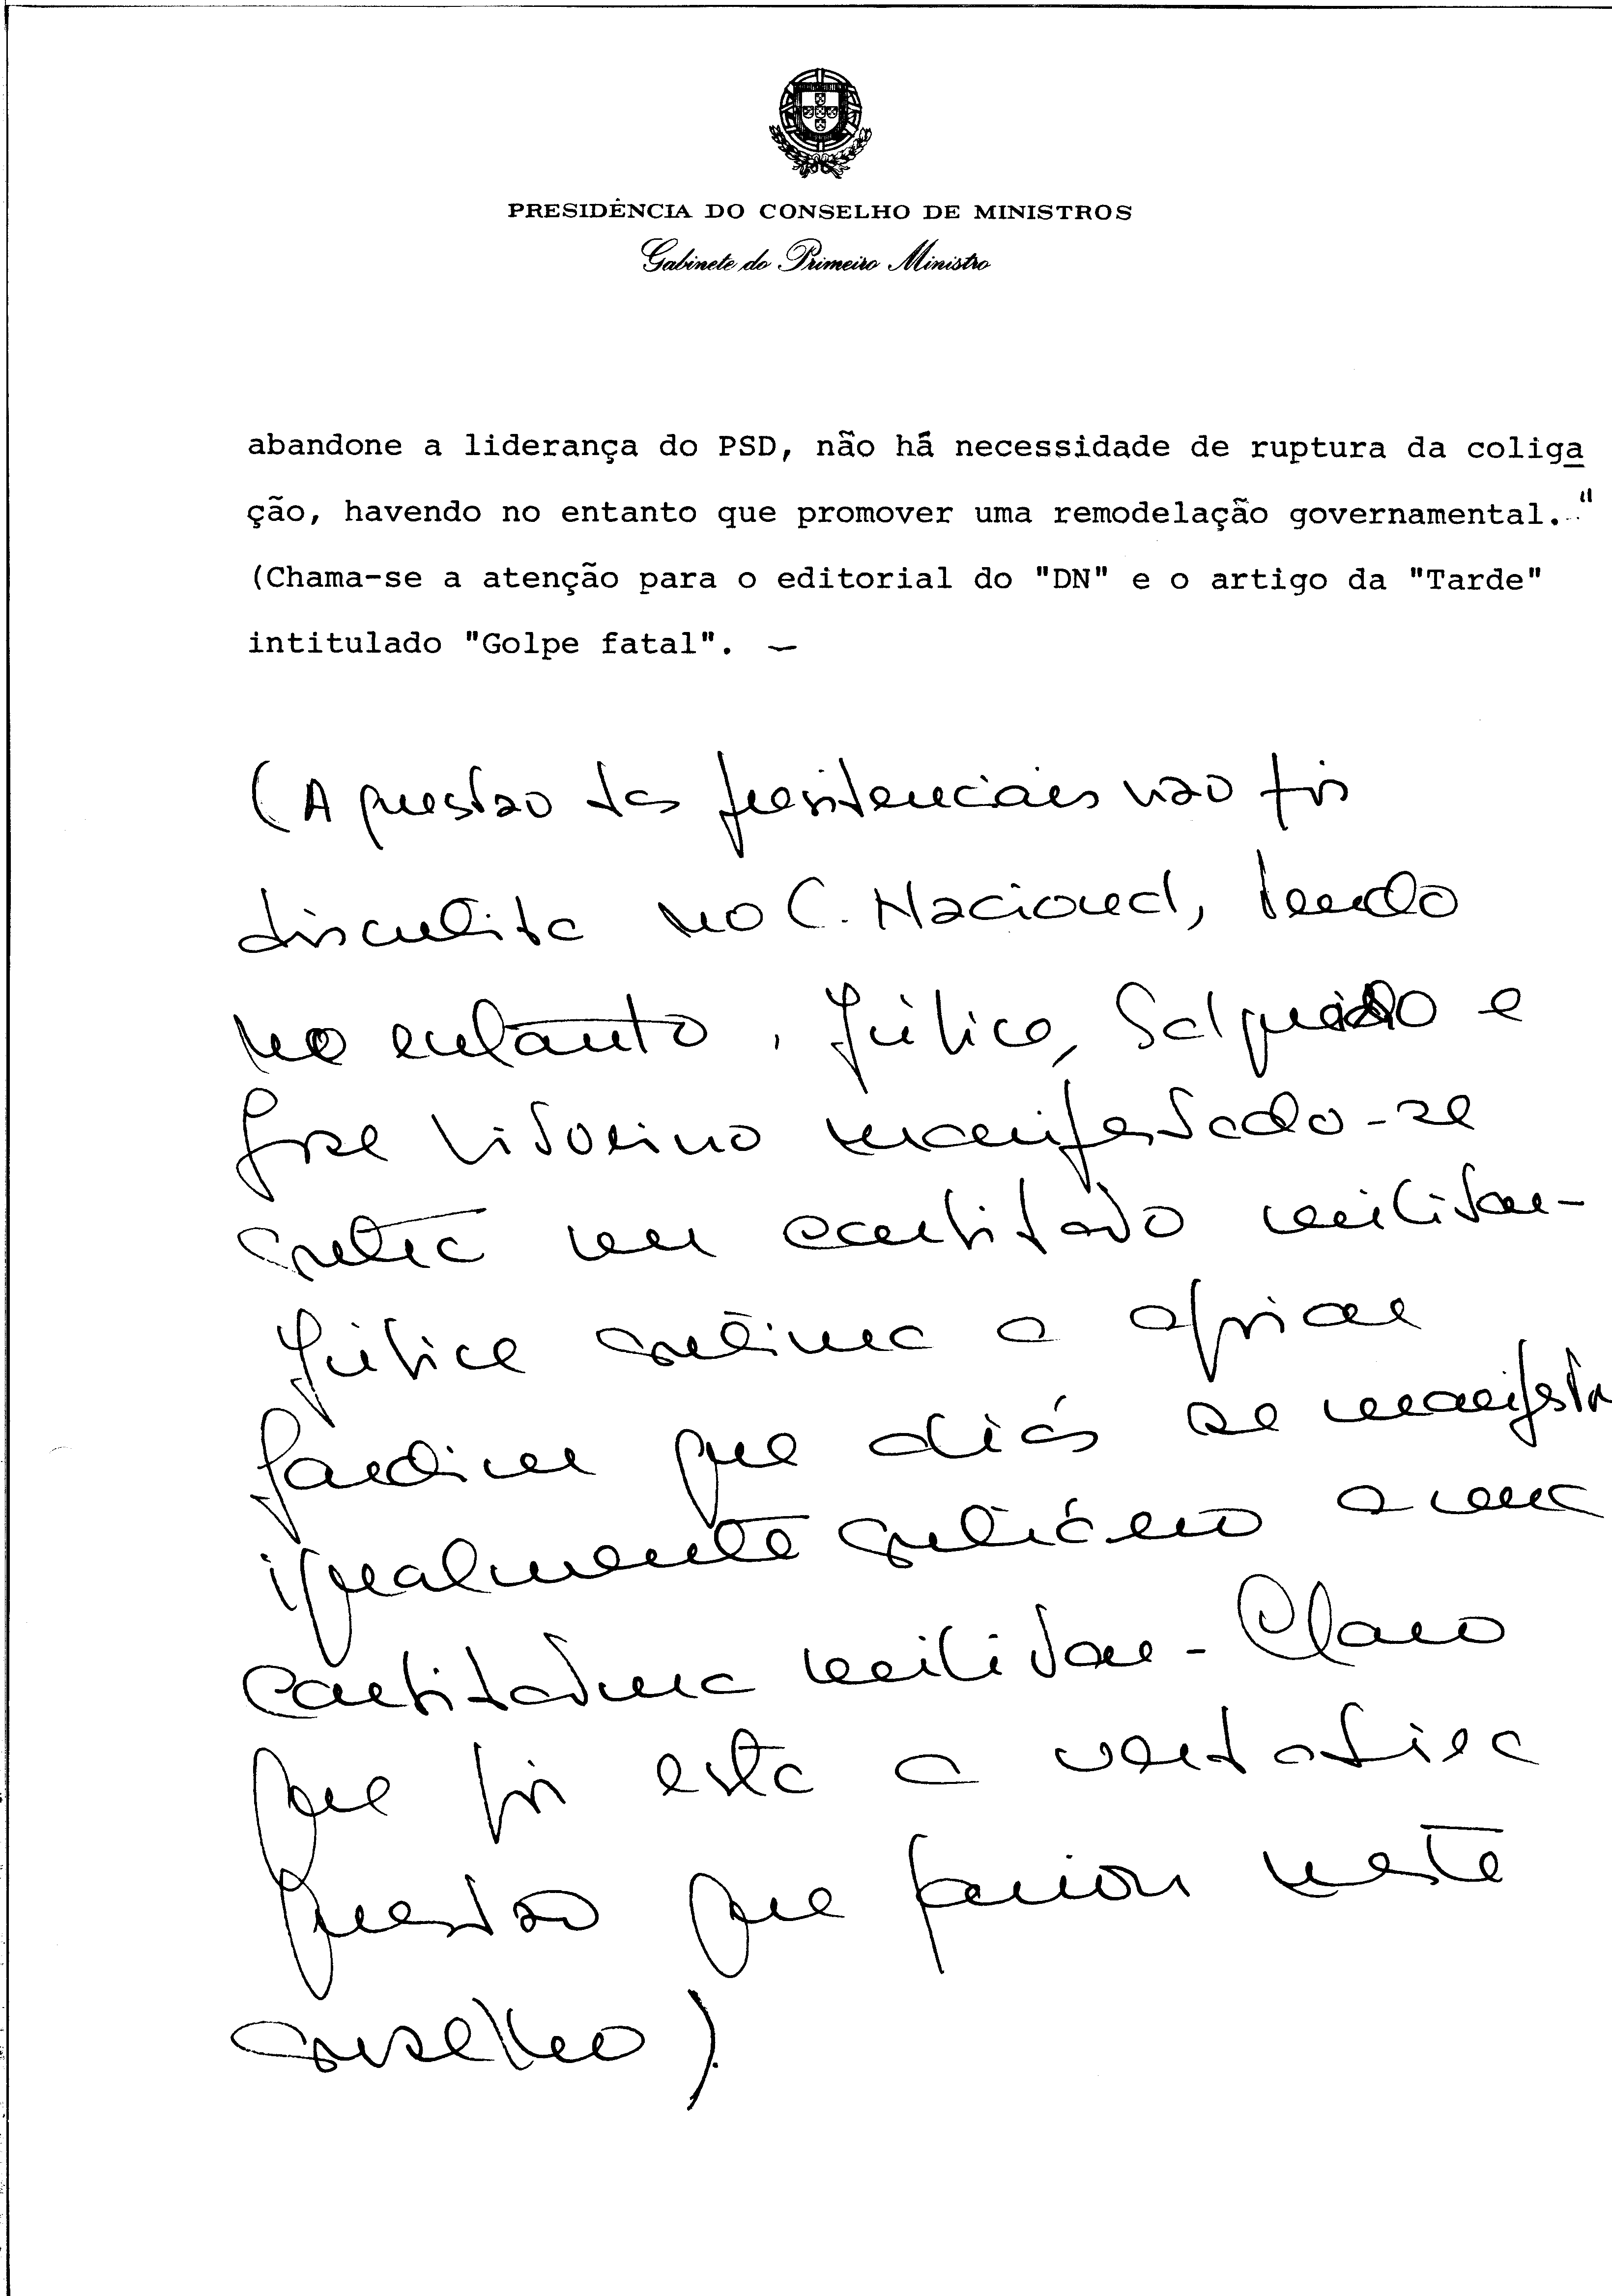 PRESIDÊNCIA DO CONSELHO DE MINISTROS
Gabinete do Primeiro Ministro
abandone a liderança do PSD, não há necessidade de ruptura da coliga
ção, havendo no entanto que promover uma remodelação governamental."
(Chama-se a atenção para o editorial do "DN" e o artigo da "Tarde"
intitulado "Golpe fatal". —
(A questão das presidenciais não foi
discutida no C. Nacional, tendo
no entanto, Júdice, Salgueiro e
José Vitorino manifestado-se
contra um candidato militar-
Júdice continua a apoiar
Jardim que aliás se manifesta
igualmente contrário a uma
candidatura militar - Claro
que foi esta a verdadeira
questão que pairou neste
conselho).